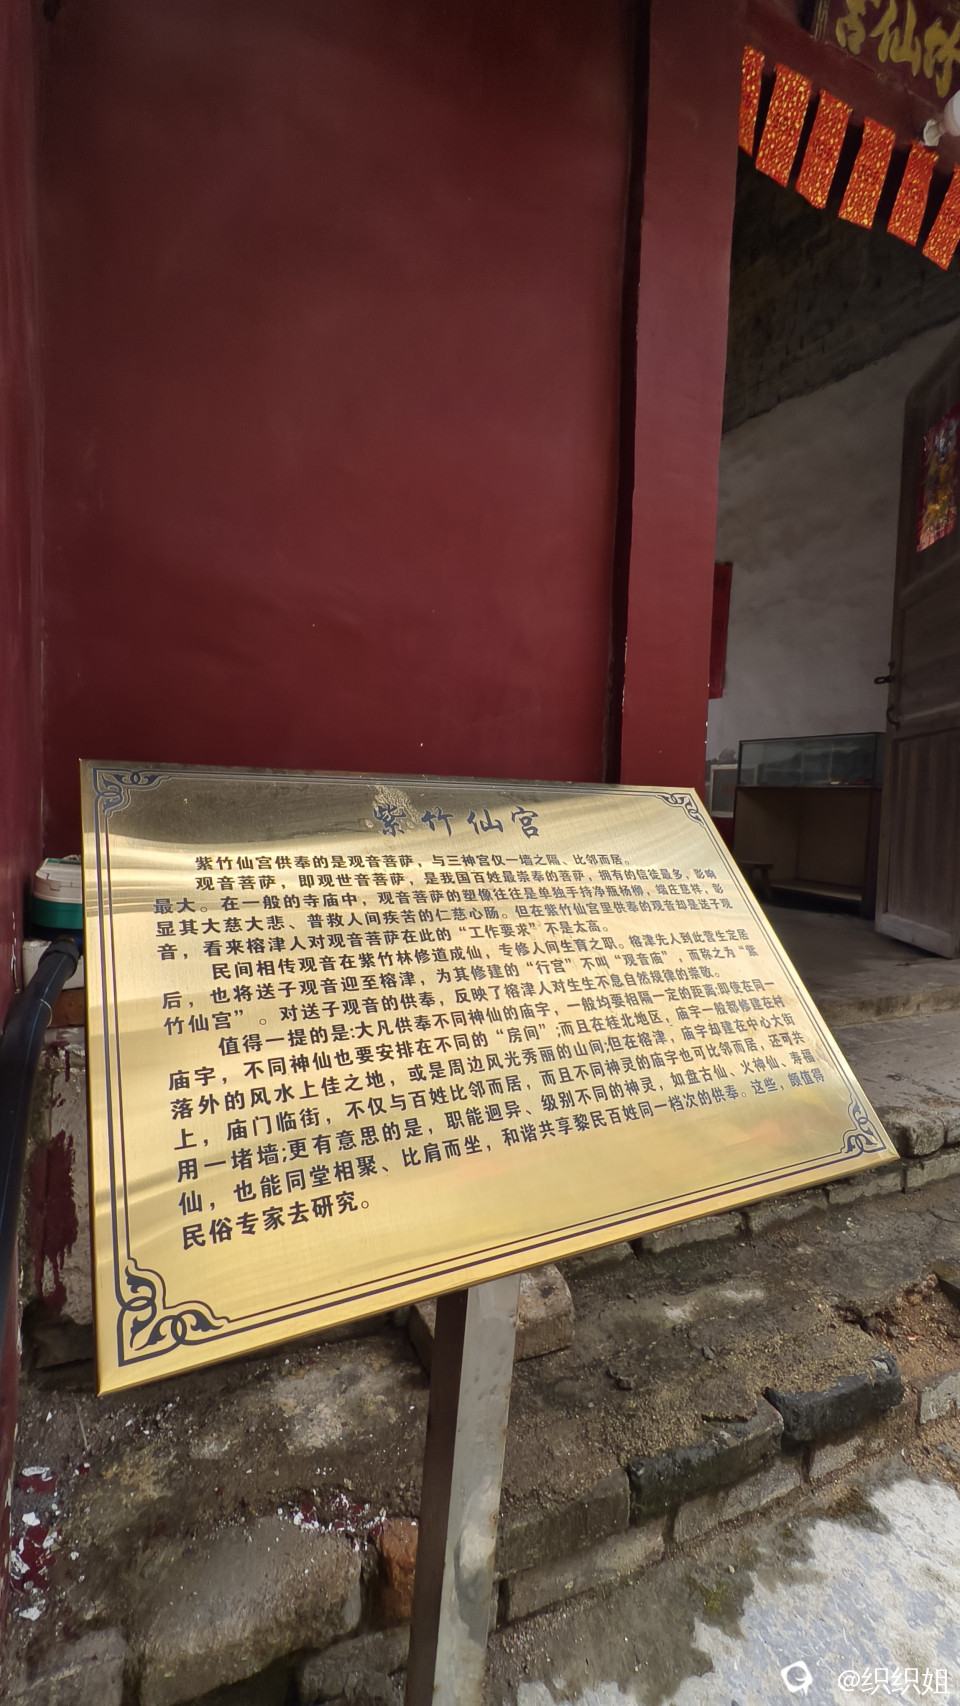 竹仙宫
紫竹仙宫
紫竹仙宫供奉的是观音菩萨，与三神宫仅一墙之隔、比邻而居。
观音菩萨，即观世音菩萨，是我国百姓最崇奉的菩萨，拥有的信徒最多，影响
最大。在一般的寺庙中，观音菩萨的塑像往往是单独手持净瓶杨柳，端庄慈祥，彰
显其大慈大悲、普救人间疾苦的仁慈心肠。但在紫竹仙宫里供奉的观音却是送子观
音，看来榕津人对观音菩萨在此的“工作要求”不是太高。
民间相传观音在紫竹林修道成仙，专修人间生育之职。榕津先人到此营生定居
后，也将送子观音迎至榕津，为其修建的“行宫”不叫“观音庙”，而称之为“紫
竹仙宫”。对送子观音的供奉，反映了榕津人对生生不息自然规律的崇敬。
值得一提的是:大凡供奉不同神仙的庙宇，一般均要相隔一定的距离;即使在同一
庙宇，不同神仙也要安排在不同的“房间”;而且在桂北地区，庙宇一般都修建在村
落外的风水上佳之地，或是周边风光秀丽的山间;但在榕津，庙宇却建在中心大街
上，庙门临街，不仅与百姓比邻而居，而且不同神灵的庙宇也可比邻而居，还可共
用一堵墙;更有意思的是，职能迥异、级别不同的神灵，如盘古仙、火神仙、寿福
仙，也能同堂相聚、比肩而坐，和谐共享黎民百姓同一档次的供奉。这些，颇值得
民俗专家去研究。
@织织姐